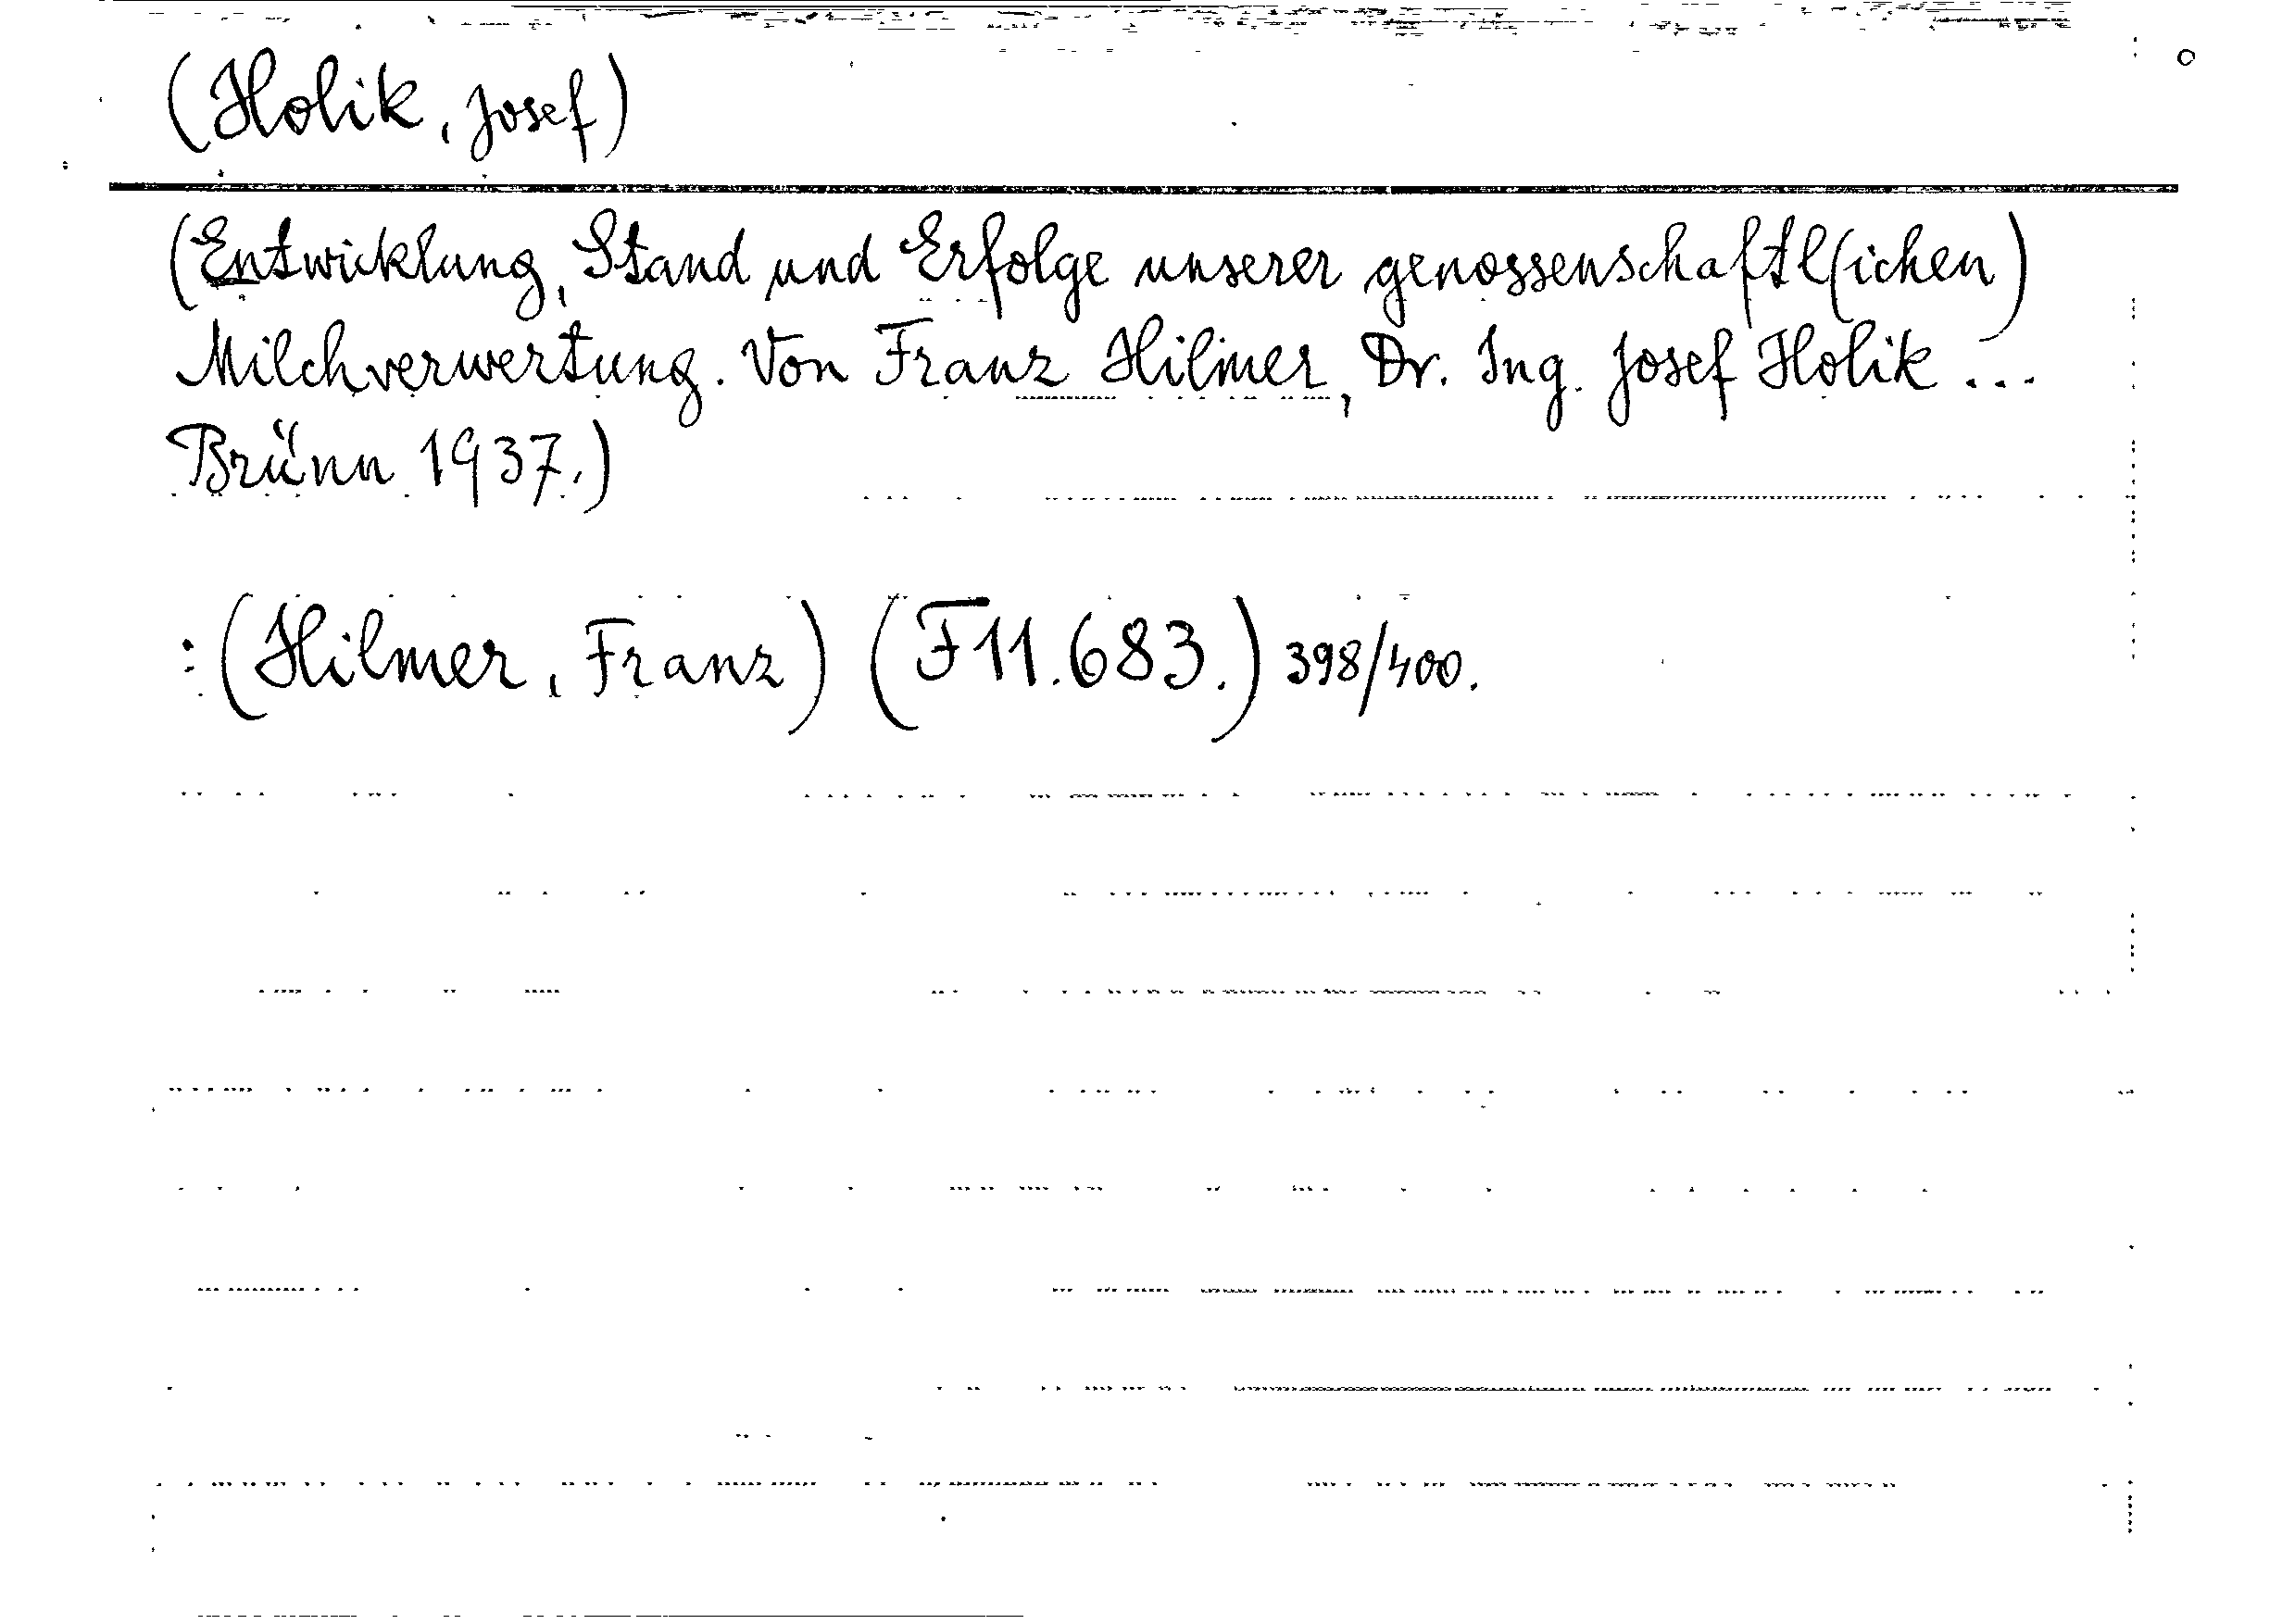 (Holik, Josef)
(Entwicklung, Stand und Erfolge unserer genossenschaftl(ichen)
Milchverwertung. Von Franz Hilmer, Dr. Ing. Josef Holik ...
Brünn 1937.)
:(Hilmer, Franz) (F 11.683.) 398/400.